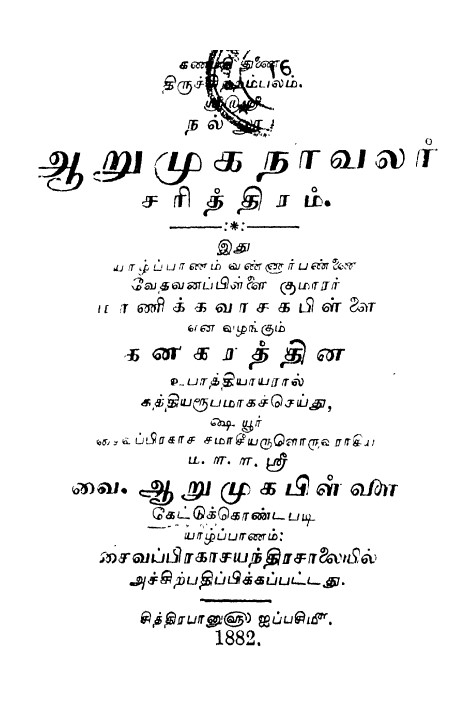 கணபதி துணை
16
திருச்சிற்றம்பலம்.
ஸ்ரீலஸ்ரீ
நல்லூர்
ஆறுமுகநாவலர்
சரித்திரம்.
இது
யாழ்ப்பாணம் வண்ணார்பண்ணை
வேதவனப்பிள்ளை குமாரர்
மாணிக்கவாசகபிள்ளை
என வழங்கும்
கனகரத்தின
உபாத்தியாயரால்
கத்தியரூபமாகச்செய்து,
ஷை யூர்
சைவப்பிரகாச சமாசீயருளொருவராகிய
ம. ள. ள. ஸ்ரீ
வை. ஆறுமுகபிள்ளை
கேட்டுக்கொண்டபடி
யாழ்ப்பாணம்:
சைவப்பிரகாசயந்திரசாலையில்
அச்சிற்பதிப்பிக்கப்பட்டது.
சித்திரபானு௵ ஐப்பசி௴.
1882.